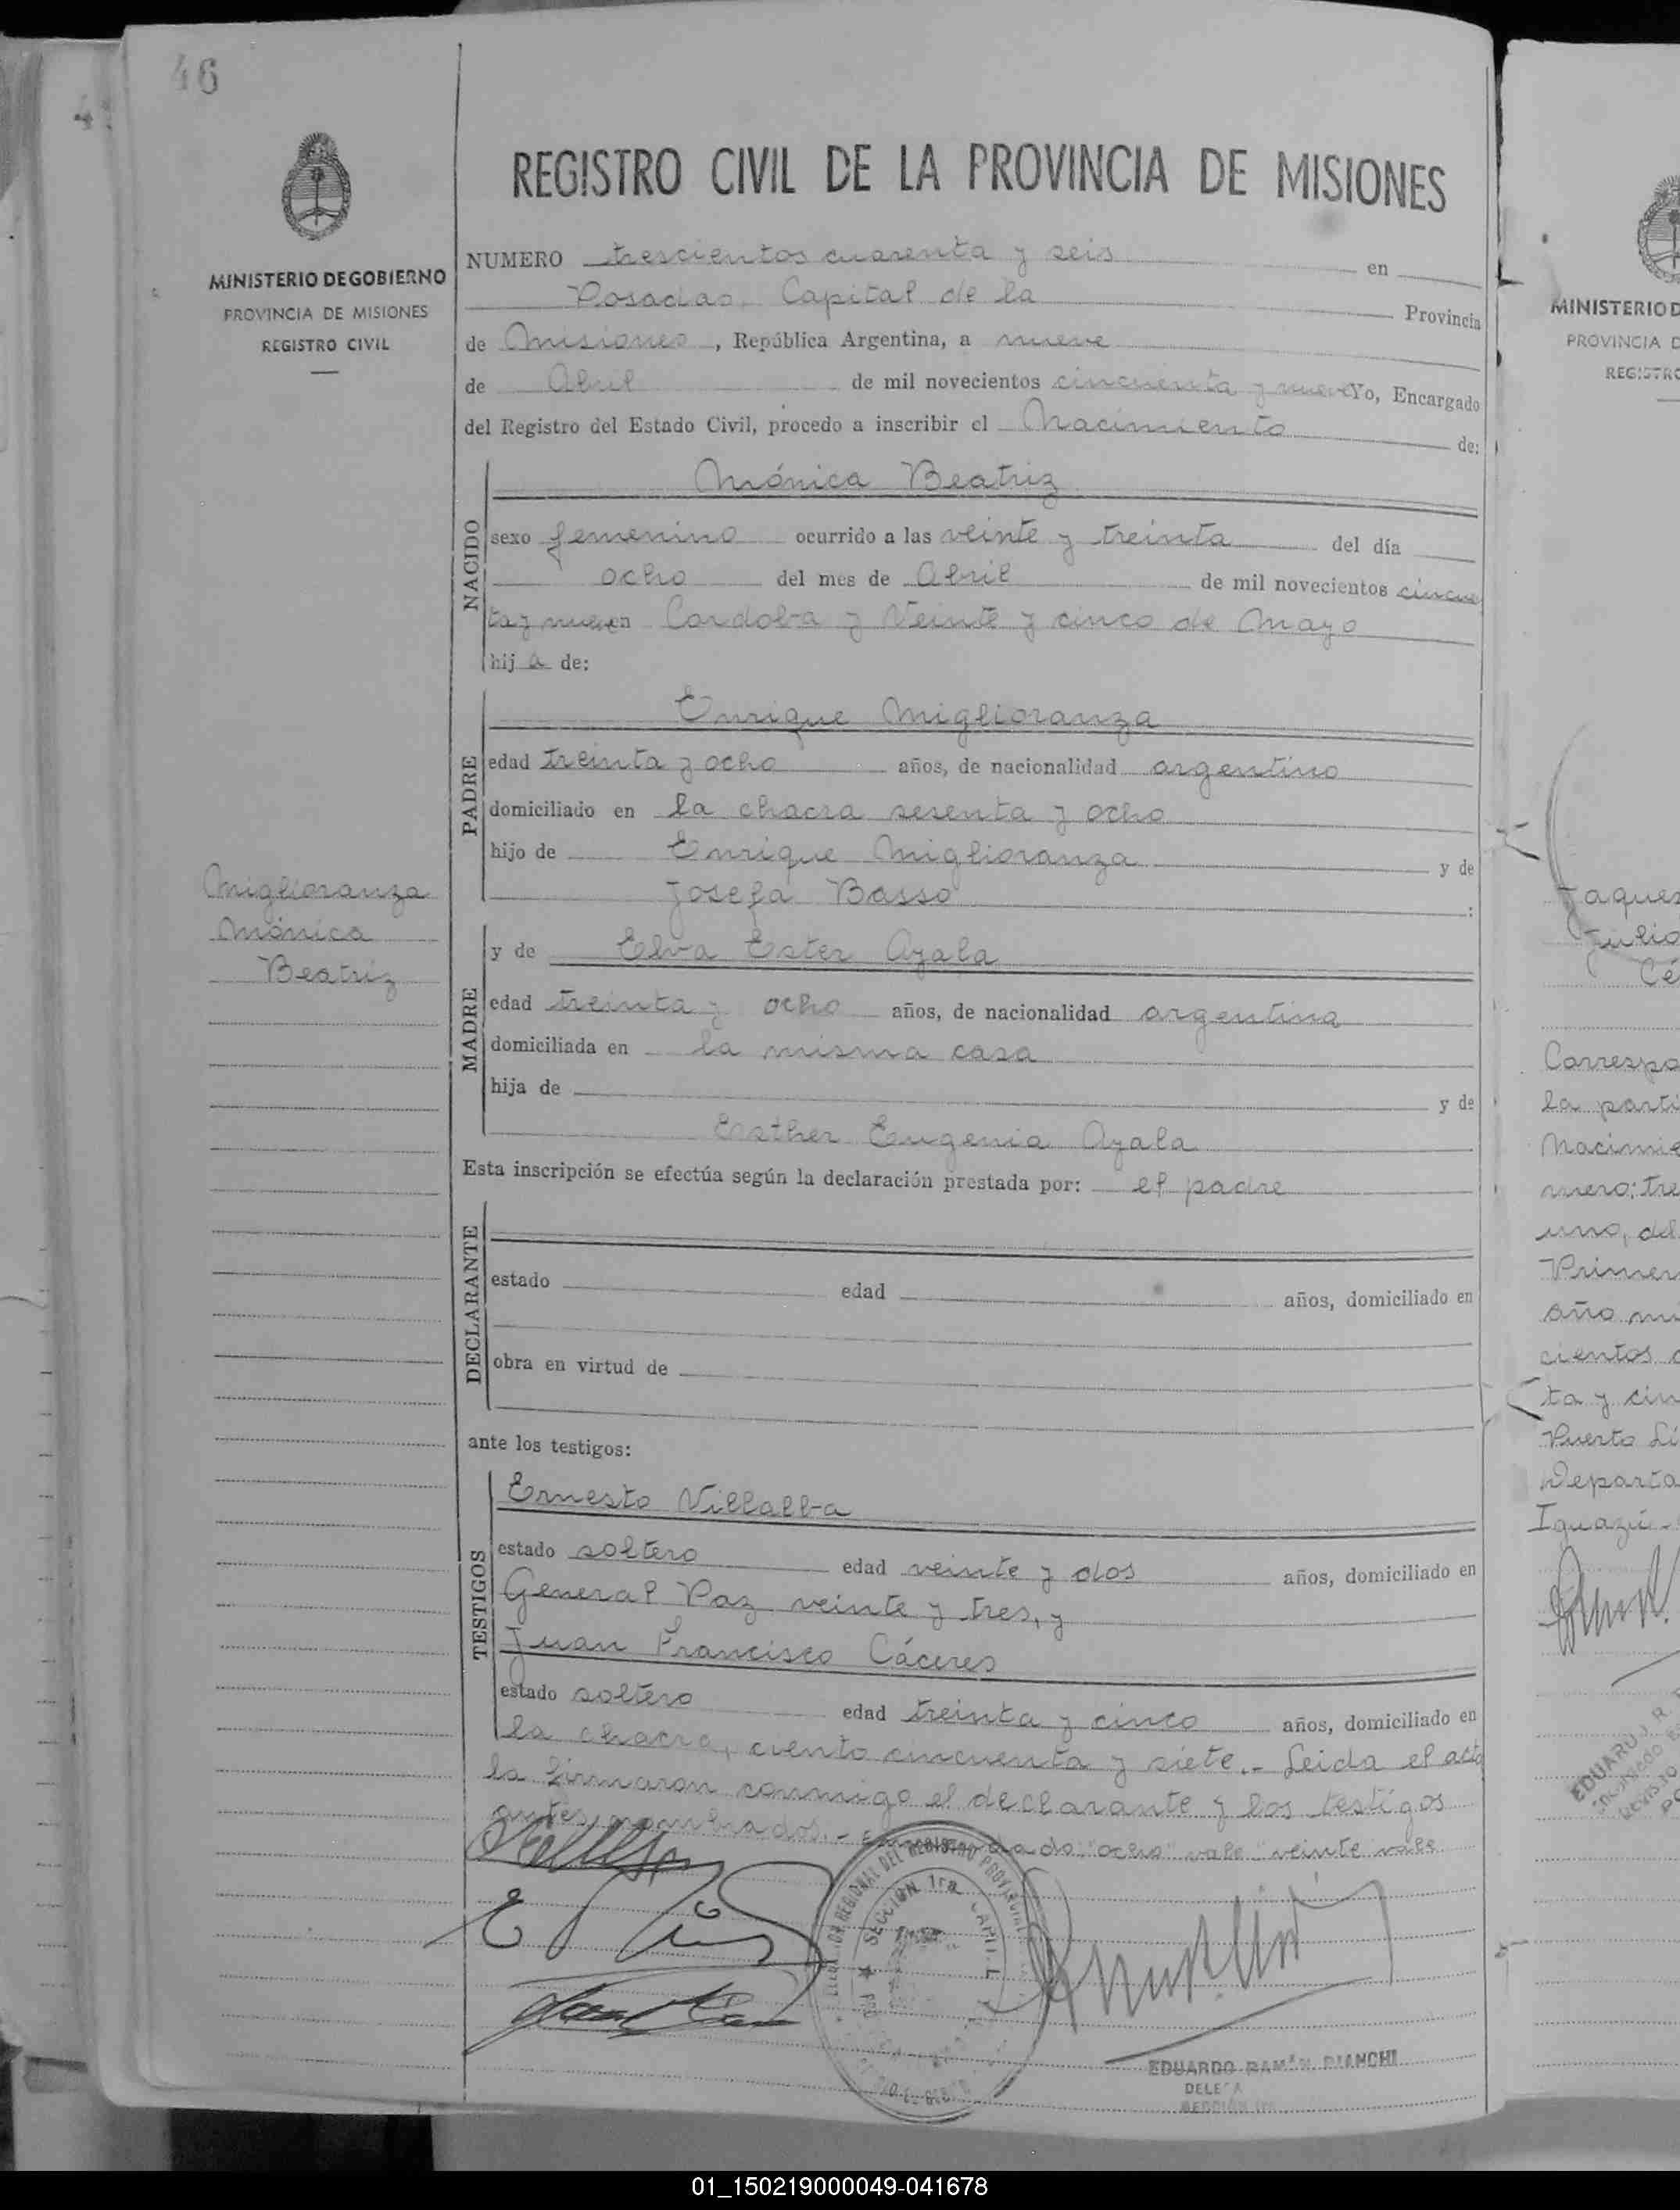 46
REGISTRO CIVIL DE LA PROVINCIA DE MISIONES
MINISTERIO DE GOBIERNO
PROVINCIA DE MISIONES
REGISTRO CIVIL
NUMERO trescientos cuarenta y seis en
Posadas, Capital de la Provincia
de Misiones, República Argentina, a nueve
de Abril de mil novecientos cincuenta y nueve Yo, Encargado
del Registro del Estado Civil, procedo a inscribir el Nacimiento de:
NACIDO
Mónica Beatriz
sexo femenino ocurrido a las veinte y treinta del día
ocho del mes de Abril de mil novecientos cincuen
ta y nueve en Cordoba y Veinte y cinco de Mayo
hij a de:
PADRE
Enrique Miglioranza
edad treinta y ocho años, de nacionalidad argentino
domiciliado en la chacra sesenta y ocho
hijo de Enrique Miglioranza y de
Josefa Basso :
Miglioranza
Mónica
Beatriz
MADRE
y de Elva Ester Ayala
edad treinta y ocho años, de nacionalidad argentina
domiciliada en la misma casa
hija de y de
Esther Eugenia Ayala
Esta inscripción se efectúa según la declaración prestada por: el padre
DECLARANTE
estado edad años, domiciliado en
obra en virtud de
ante los testigos:
TESTIGOS
Ernesto Villalba
estado soltero edad veinte y dos años, domiciliado en
General Paz veinte y tres, y
Juan Francisco Cáceres
estado soltero edad treinta y cinco años, domiciliado en
la chacra, ciento cincuenta y siete.- Leida el acta
la firmaron conmigo el declarante y los testigos
antes nombrados.- "ocho" vale "veinte vale
REGIONAL DEL REGISTRO PROVINCIAL
SECCION 1ra
EDUARDO RAMÓN BIANCHI
SECCIÓN 1ra
MINISTERIO D
PROVINCIA D
REGISTRO
Jaques
Julio
Cé
Correspo
la parti
Nacimie
mero: tre
uno, del
Primer
año mi
cientos c
ta y cin
Puerto Li
Departa
Iguazú.-
01_150219000049-041678